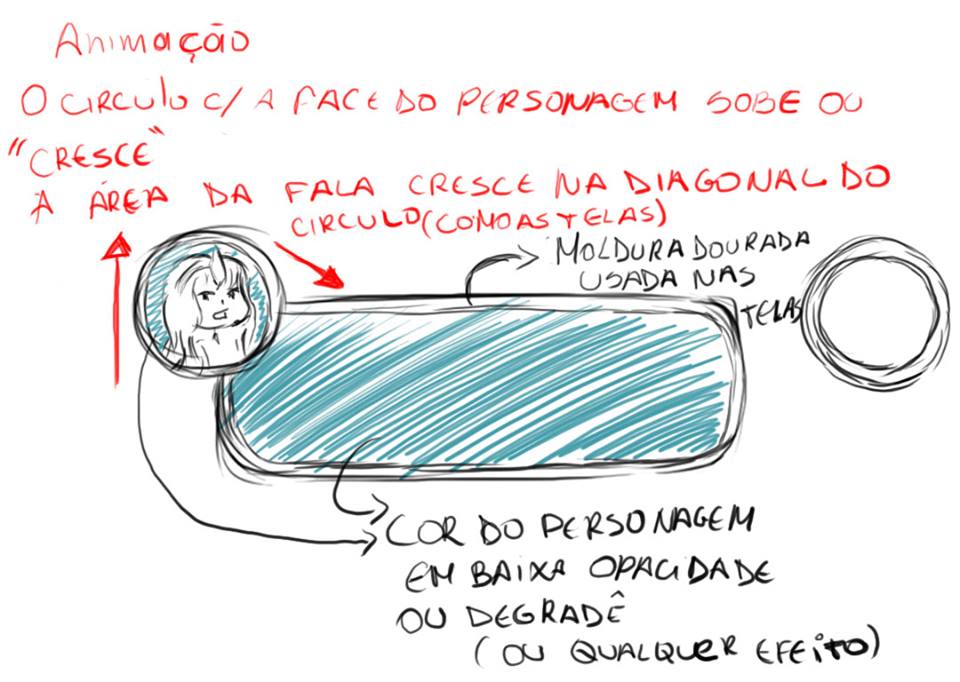 Animação
O CIRCULO C/ A FACE DO PERSONAGEM SOBE OU
"CRESCE"
A ÁREA DA FALA CRESCE NA DIAGONAL DO
CIRCULO (COMO AS TELAS)
MOLDURA DOURADA
USADA NAS
TELAS
COR DO PERSONAGEM
EM BAIXA OPACIDADE
OU DEGRADÊ
(OU QUALQUER EFEITO)